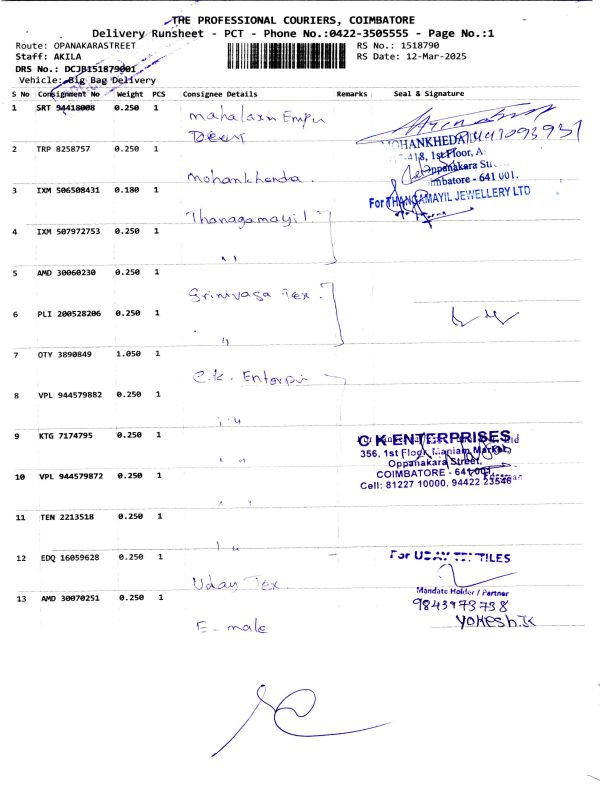 THE PROFESSIONAL COURIERS, COIMBATORE
Delivery Runsheet - PCT - Phone No.:0422-3505555 - Page No.:1
Route: OPANAKARASTREET RS No.: 1518790
Staff: AKILA RS Date: 12-Mar-2025
DRS No.: DCJB151879001
Vehicle: Big Bag Delivery
S No Consignment No Weight PCS Consignee Details Remarks Seal & Signature
1 SRT 94418008 0.250 1 mahalaxmi
2 TRP 8258757 0.250 1 mohankhenda
MOHANKHEDA
418, 1st Floor,
Oppanakara
Coimbatore - 641 001.
3 IXM 506508431 0.180 1 Thanagamayil
For THANGAMAYIL JEWELLERY LTD
4 IXM 507972753 0.250 1 " "
5 AMD 30060230 0.250 1 Srinivasa Tex.
6 PLI 200528206 0.250 1 "
7 OTY 3890849 1.050 1 C.K. Enterpri
8 VPL 944579882 0.250 1 " "
9 KTG 7174795 0.250 1 " "
C K ENTERPRISES
356, 1st Floor, Maniam Market,
Oppanakara Street,
COIMBATORE - 641 001.
Cell: 81227 10000, 94422 23546
10 VPL 944579872 0.250 1 " "
11 TEN 2213518 0.250 1 " "
12 EDQ 16059628 0.250 1 Uday Tex.
For UDAY TEXTILES
Mandate Holder / Partner
9843973738
YOKESH.K
13 AMD 30070251 0.250 1 E-male